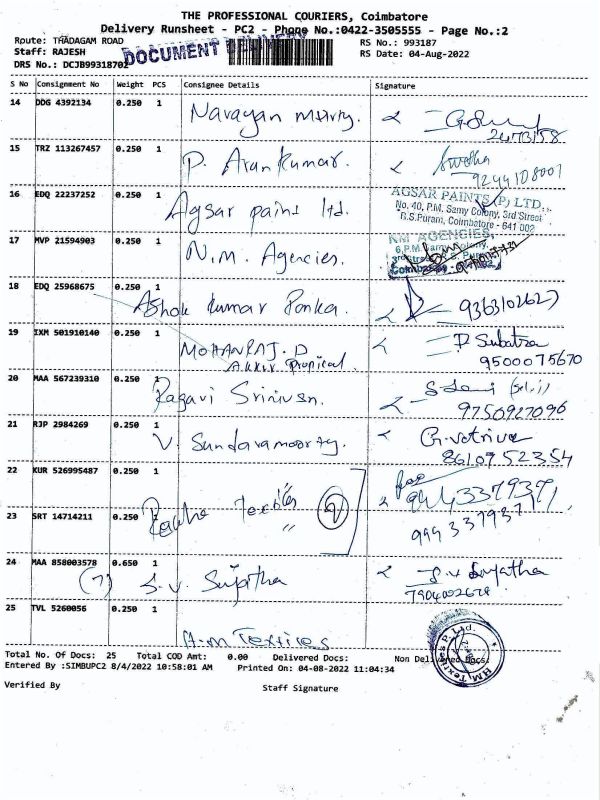 THE PROFESSIONAL COURIERS, Coimbatore
Delivery Runsheet - PC2 - Phone No.:0422-3505555 - Page No.:2
Route: THADAGAM ROAD
RS No.: 993187
Staff: RAJESH
DOCUMENT DELIVERY
RS Date: 04-Aug-2022
DRS No.: DCJB99318702
S No Consignment No Weight PCS Consignee Details Signature
14 DDG 4392134 0.250 1 Narayan Murty.
2473158
15 TRZ 113267457 0.250 1 P. Arankumar. Swetha
9244108001
16 EDQ 22237252 0.250 1 Agsar pains ltd. AGSAR PAINTS (P) LTD.,
No. 40, P.M. Samy Colony, 3rd Street
R.S.Puram, Coimbatore - 641 002
17 MVP 21594903 0.250 1 N.M. Agencies. NM AGENCIES,
6,P.M. Samy Colony,
3rd Street, R.S. Puram,
Coimbatore
18 EDQ 25968675 0.250 1 Ashok Kumar Ponka. 9363102627
19 IXM 501910140 0.250 1 MOHANRAJ. D P. Subatra
9500075670
20 MAA 567239310 0.250 1 Ragavi Srinivsn.
9750927096
21 RJP 2984269 0.250 1 V. Sundaramoorty. G. vetrivel
8610952354
22 KUR 526995487 0.250 1 Textiles 9443379371
23 SRT 14714211 0.250 1 " 9443379371
24 MAA 858003578 0.650 1 S.V. Sujatha S.V Sujatha
(7) 7904002678
25 TVL 5260056 0.250 1 H.M Textiles
H.M. Textiles P. Ltd.
Total No. Of Docs: 25 Total COD Amt: 0.00 Delivered Docs: Non Delivered Docs:
Entered By :SIMBUPC2 8/4/2022 10:58:01 AM Printed On: 04-08-2022 11:04:34
Verified By Staff Signature